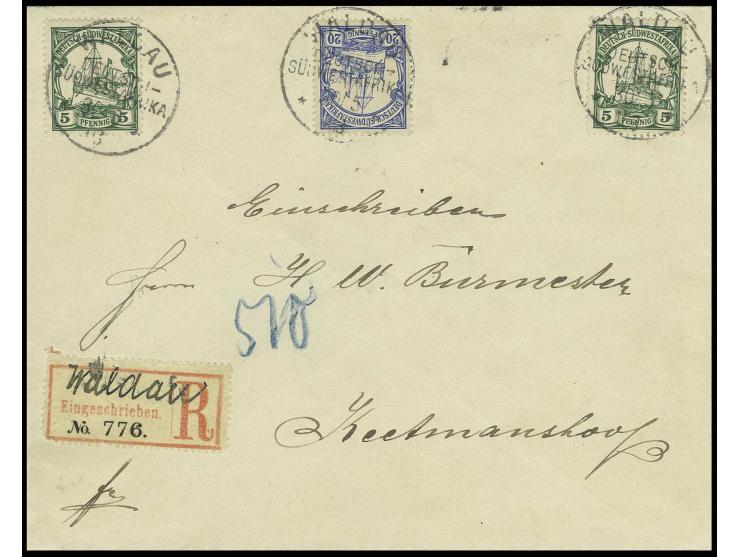 DEUTSCH-SÜDWESTAFRIKA
5 PFENNIG 5
DEUTSCH-SÜDWESTAFRIKA
20 20
DEUTSCH-SÜDWESTAFRIKA
5 PFENNIG 5
WALDAU
DEUTSCH-
SÜDWESTAFRIKA
WALDAU
DEUTSCH-
SÜDWESTAFRIKA
WALDAU
DEUTSCH-
SÜDWESTAFRIKA
Einschreiben
Herrn H. W. Burmester
Waldau
Eingeschrieben.
R
No. 776.
Keetmanshoop
fr